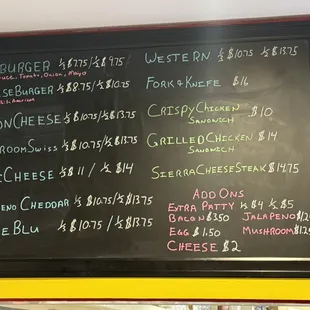 BURGER ⅓ $7.75 / ½ $9.75
Tomato, Onion, Mayo
BURGER ⅓ $8.75 / ½ $10.75
American
CHEESE ⅓ $10.75 / ½ $13.75
SWISS ⅓ $10.75 / ½ $13.75
CHEESE ⅓ $11 / ½ $14
CHEDDAR ⅓ $10.75 / ½ $13.75
BLU ⅓ $10.75 / ½ $13.75
WESTERN ⅓ $10.75 ½ $13.75
FORK & KNIFE $16
CRISPY CHICKEN SANDWICH $10
GRILLED CHICKEN SANDWICH $14
SIERRA CHEESE STEAK $14.75
ADD ONS
EXTRA PATTY ⅓ $4 ½ $5
BACON $3.50 JALAPENO
EGG $1.50 MUSHROOM
CHEESE $2